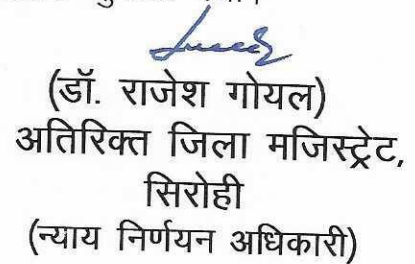 (डॉ. राजेश गोयल)
अतिरिक्त जिला मजिस्ट्रेट,
सिरोही
(न्याय निर्णयन अधिकारी)